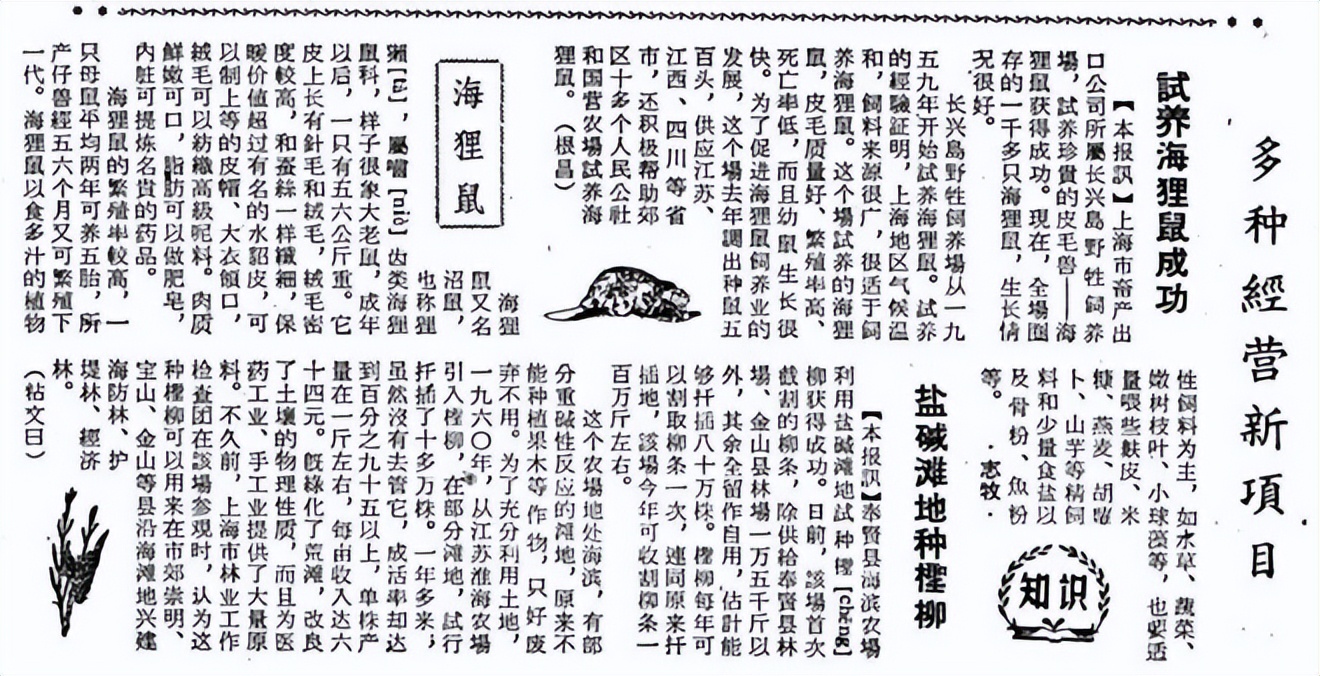 多种經营新項目
試养海狸鼠成功
【本报訊】上海市畜产出
口公司所屬长兴島野牲飼养
場，試养珍貴的皮毛兽——海
狸鼠获得成功。現在，全場圈
存的一千多只海狸鼠，生长情
况很好。
长兴島野牲飼养場从一九
五九年开始試养海狸鼠。試养
的經驗証明，上海地区气候温
和，飼料来源很广，很适于飼
养海狸鼠。这个場試养的海狸
鼠，皮毛质量好、繁殖率高、
死亡率低，而且幼鼠生长很
快。为了促进海狸鼠飼养业的
发展，这个場去年調出种鼠五
百头，供应江苏、
江西、四川等省
市，还积极帮助郊
区十多个人民公社
和国营农場試养海
狸鼠。（根昌）
海狸鼠
海狸
鼠又名
沼鼠，
也称狸
獺[tǎ]，屬嚙[niè]齿类海狸
鼠科，样子很象大老鼠，成年
以后，一只有五六公斤重。它
皮上长有針毛和絨毛，絨毛密
度較高，和蚕絲一样纖細，保
暖价值超过有名的水貂皮，可
以制上等的皮帽、大衣領口，
絨毛可以紡織高級呢料。肉质
鮮嫩可口，脂肪可以做肥皂，
内脏可提炼名貴的药品。
海狸鼠的繁殖率較高，一
只母鼠平均两年可养五胎，所
产仔兽經五六个月又可繁殖下
一代。海狸鼠以食多汁的植物
性飼料为主，如水草、蔬菜、
嫩树枝叶、小球藻等，也要适
量喂些麩皮、米
糠、燕麦、胡蘿
卜、山芋等精飼
料和少量食盐以
及骨粉、魚粉
等。 ·志牧·
知识
盐碱滩地种檉柳
【本报訊】奉賢县海滨农場
利用盐碱滩地試种檉[chēng]
柳获得成功。日前，該場首次
截割的柳条，除供給奉賢县林
場、金山县林場一万五千斤以
外，其余全留作自用，估計能
够扦插八十万株。檉柳每年可
以割取柳条一次，連同原来扦
插地，該場今年可收割柳条一
百万斤左右。
这个农場地处海滨，有部
分重碱性反应的滩地，原来不
能种植果木等作物，只好废
弃不用。为了充分利用土地，
一九六〇年，从江苏淮海农場
引入檉柳，在部分滩地，試行
扦插了十多万株。一年多来，
虽然沒有去管它，成活率却达
到百分之九十五以上，单株产
量在一斤左右，每亩收入达六
十四元。旣綠化了荒滩，改良
了土壤的物理性质，而且为医
药工业、手工业提供了大量原
料。不久前，上海市林业工作
检查团在該場参观时，认为这
种檉柳可以用来在市郊崇明、
宝山、金山等县沿海滩地兴建
海防林、护
堤林、經济
林。
（粘文日）